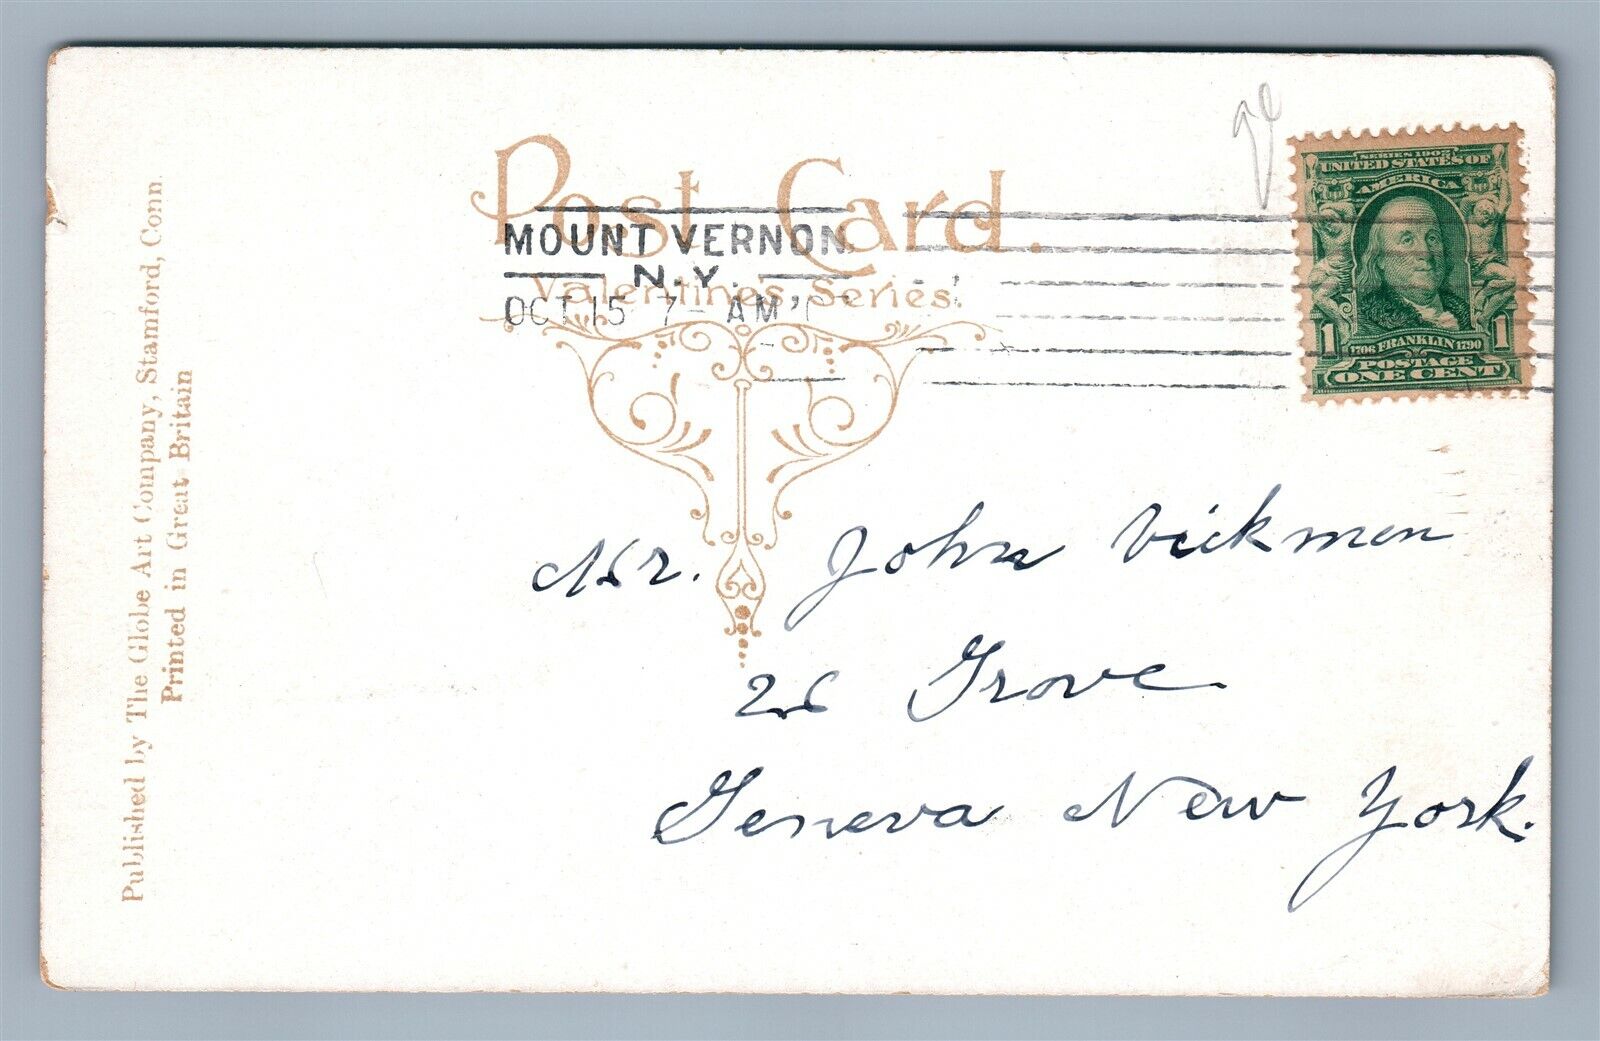 Post Card.
Valentines Series.
MOUNT VERNON
N.Y.
OCT 15 7- AM '0
SERIES 1902
UNITED STATES OF
AMERICA
1 1
1706 FRANKLIN 1790
POSTAGE
ONE CENT
Mr. John Vickmen
26 Grove
Geneva New York.
Published by The Globe Art Company, Stamford, Conn
Printed in Great Britain